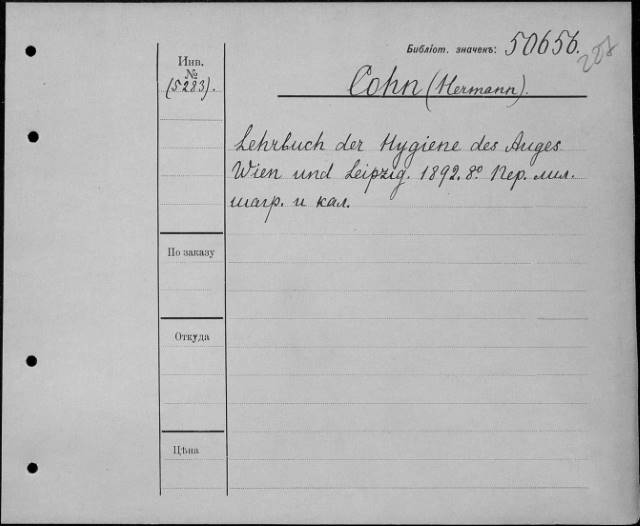 Библіот. значекъ: 50656.
228
Инв.
№
(5283).
Cohn (Hermann).
Lehrbuch der Hygiene des Auges
Wien und Leipzig. 1892. 8º Пер. лил.
шагр. и кал.
По заказу
Откуда
Цѣна